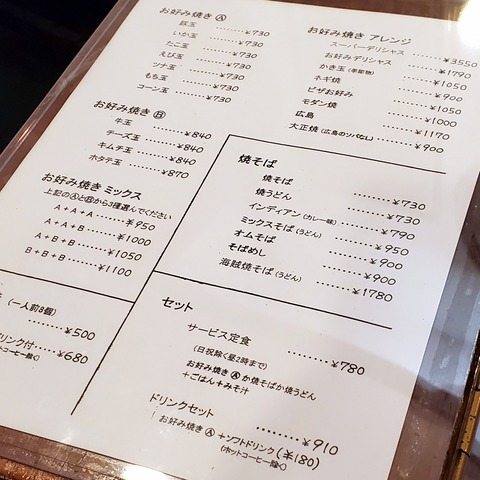 お好み焼き Ⓐ
豚玉 ………￥730
いか玉 ………￥730
たこ玉 ………￥730
えび玉 ………￥730
ツナ玉 ………￥730
もち玉 ………￥730
コーン玉 ………￥730
お好み焼き Ⓑ
牛玉 ………￥840
チーズ玉 ………￥840
キムチ玉 ………￥840
ホタテ玉 ………￥870
お好み焼き ミックス
上記のⒶとⒷから3種選んでください
A+A+A ………￥950
A+A+B ………￥1000
A+B+B ………￥1050
B+B+B ………￥1100
（一人前8個）
………￥500
リンク付 ………￥680
ットコーヒー除く)
お好み焼き アレンジ
スーパーデリシャス ………￥3550
お好みデリシャス ………￥1790
かき玉 (季節物) ………￥1050
ネギ焼 ………￥900
ピザお好み ………￥1050
モダン焼 ………￥1000
広島 ………￥1170
大正焼 (広島のソバなし) ………￥900
焼そば
焼そば ………￥730
焼うどん ………￥730
インディアン (カレー味) ………￥790
ミックスそば (うどん) ………￥950
オムそば ………￥900
そばめし ………￥900
海賊焼そば (うどん) ………￥1780
セット
サービス定食 ………￥780
(日祝除く昼2時まで)
お好み焼き Ⓐ か焼そばか焼うどん
+ごはん+みそ汁
ドリンクセット ………￥910
お好み焼き Ⓐ +ソフトドリンク(￥180)
(ホットコーヒー除く)